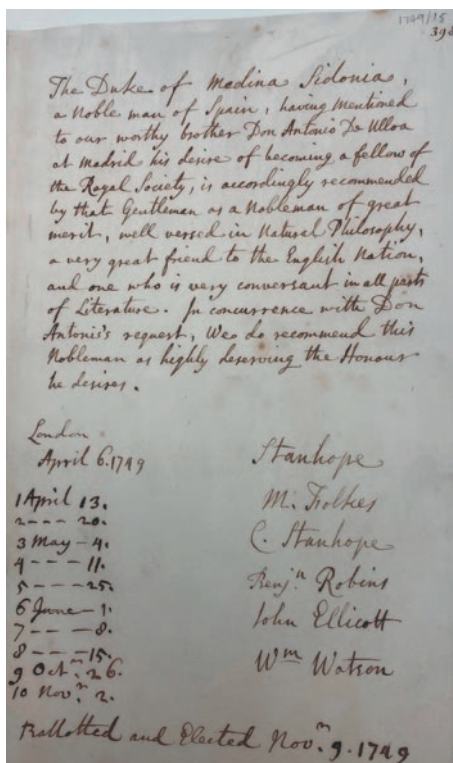 1749/15
398
The Duke of Medina Sidonia,
a Noble man of Spain, having mentioned
to our worthy brother Don Antonio De Ulloa
at Madrid his desire of becoming a fellow of
the Royal Society, is accordingly recommended
by that Gentleman as a Nobleman of great
merit, well versed in Natural Philosophy,
a very great friend to the English Nation,
and one who is very conversant in all parts
of Literature. In concurrence with Don
Antonio's request, We do recommend this
Nobleman as highly deserving the Honour
he desires.
London
April 6. 1749
Stanhope
1 April 13.
M. Folkes
2 --- 20.
3 May - 4.
C. Stanhope
4 --- 11.
5 --- 25.
Benjn Robins
6 June - 1.
John Ellicott
7 --- 8.
8 --- 15.
Wm Watson
9 Octr. 26.
10 Novr. 2.
Ballotted and Elected Novr. 9. 1749